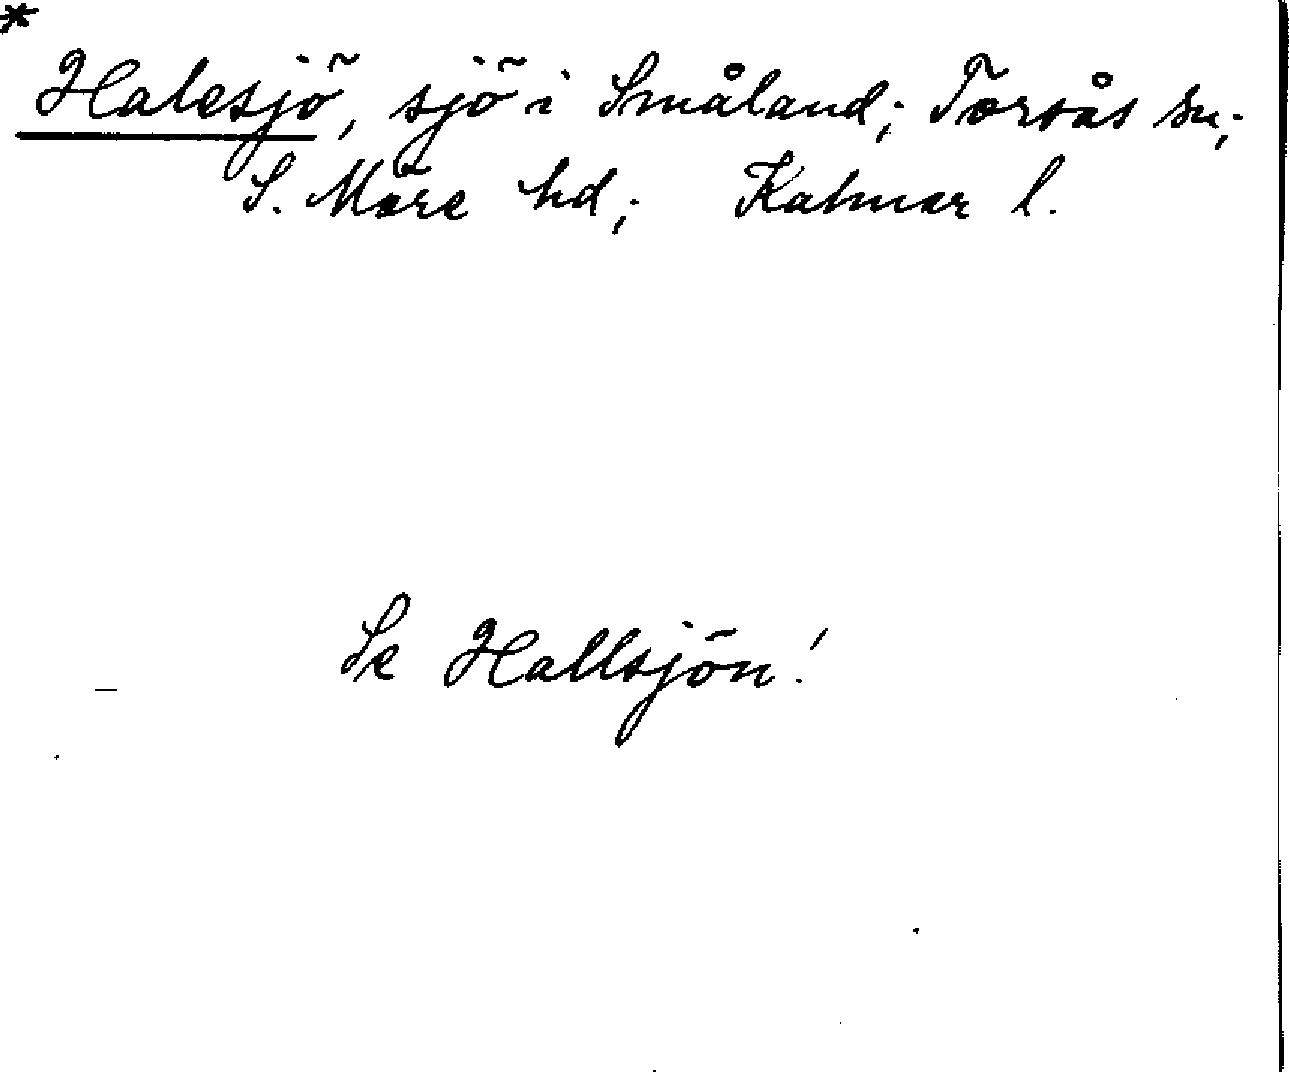 *
Halesjö, sjö i Småland; Torsås sn;
S. Möre hd; Kalmar l.
Se Hallsjön!